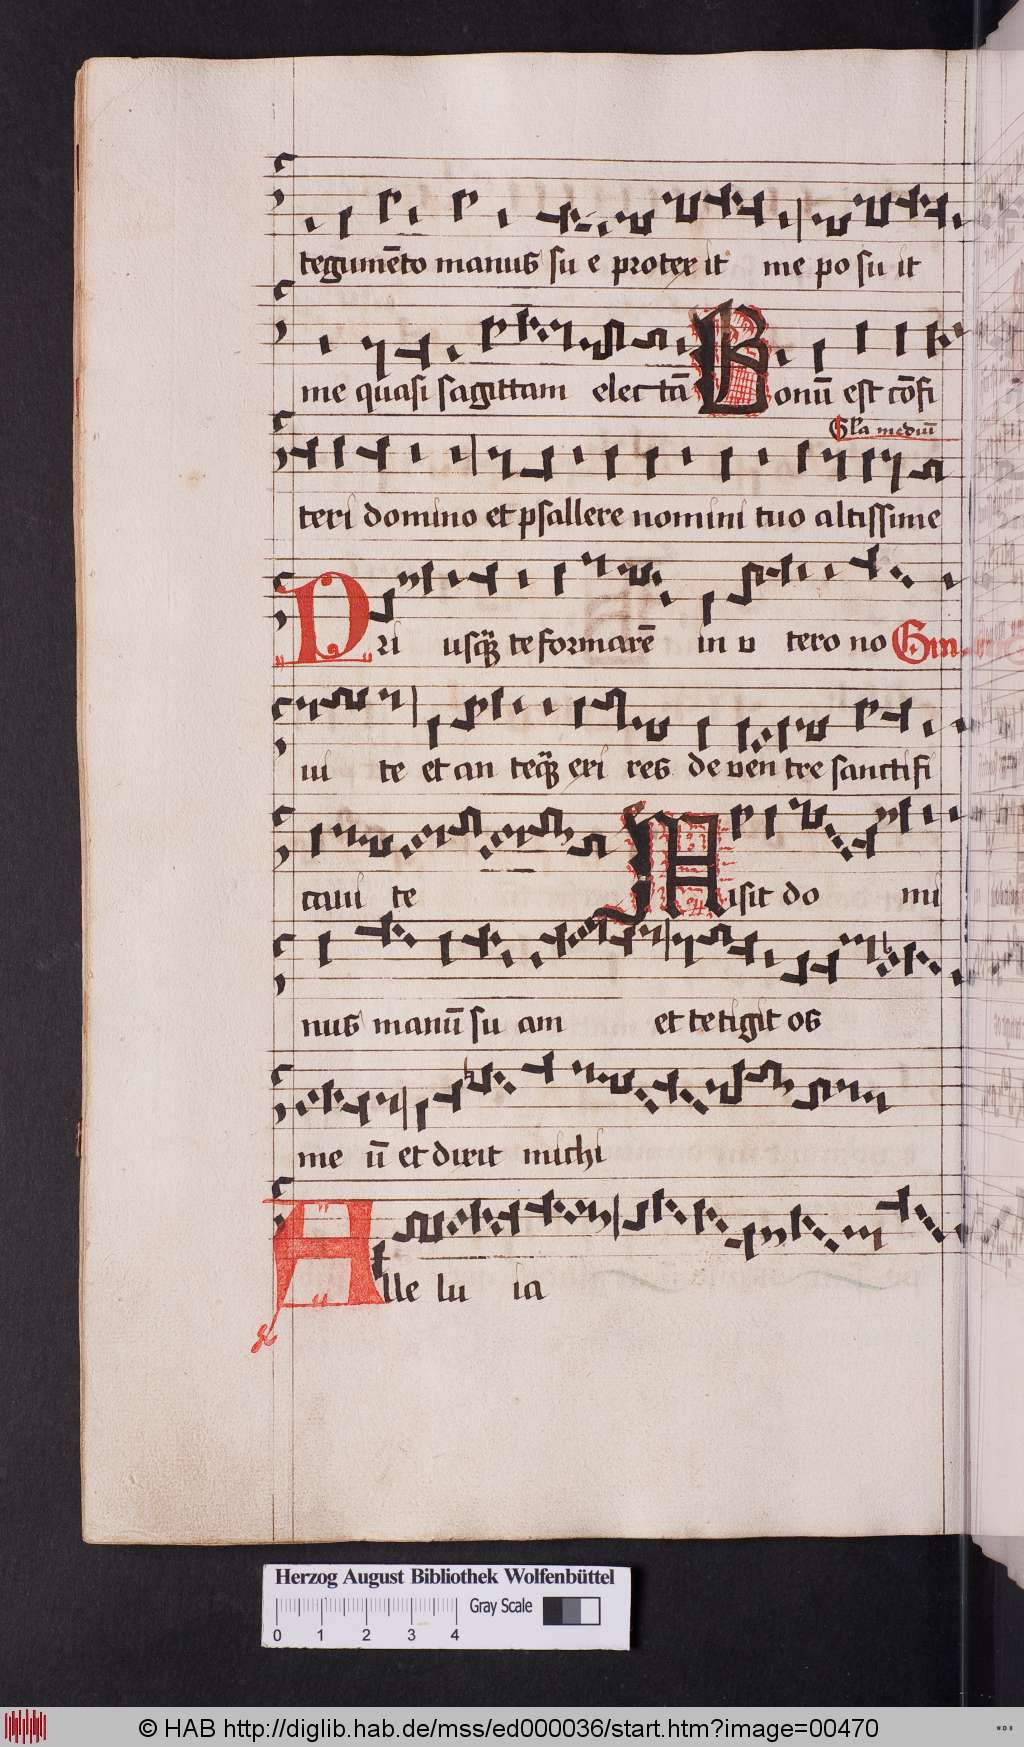 tegumēto manus su e protex it me po su it
me quasi sagittam elec tā Bonū est cōfi
Gl'a mediū
teri domino et psallere nomini tuo altissime
Pri usq̄ȝ te formarē in v tero no Gra
ui te et an teq̄ȝ exi res de ven tre sanctifi
caui te Misit do mi
nus manū su am et tetigit os
me ū et dixit michi
Alle lu ia
Herzog August Bibliothek Wolfenbüttel
Gray Scale
0 1 2 3 4
© HAB http://diglib.hab.de/mss/ed000036/start.htm?image=00470